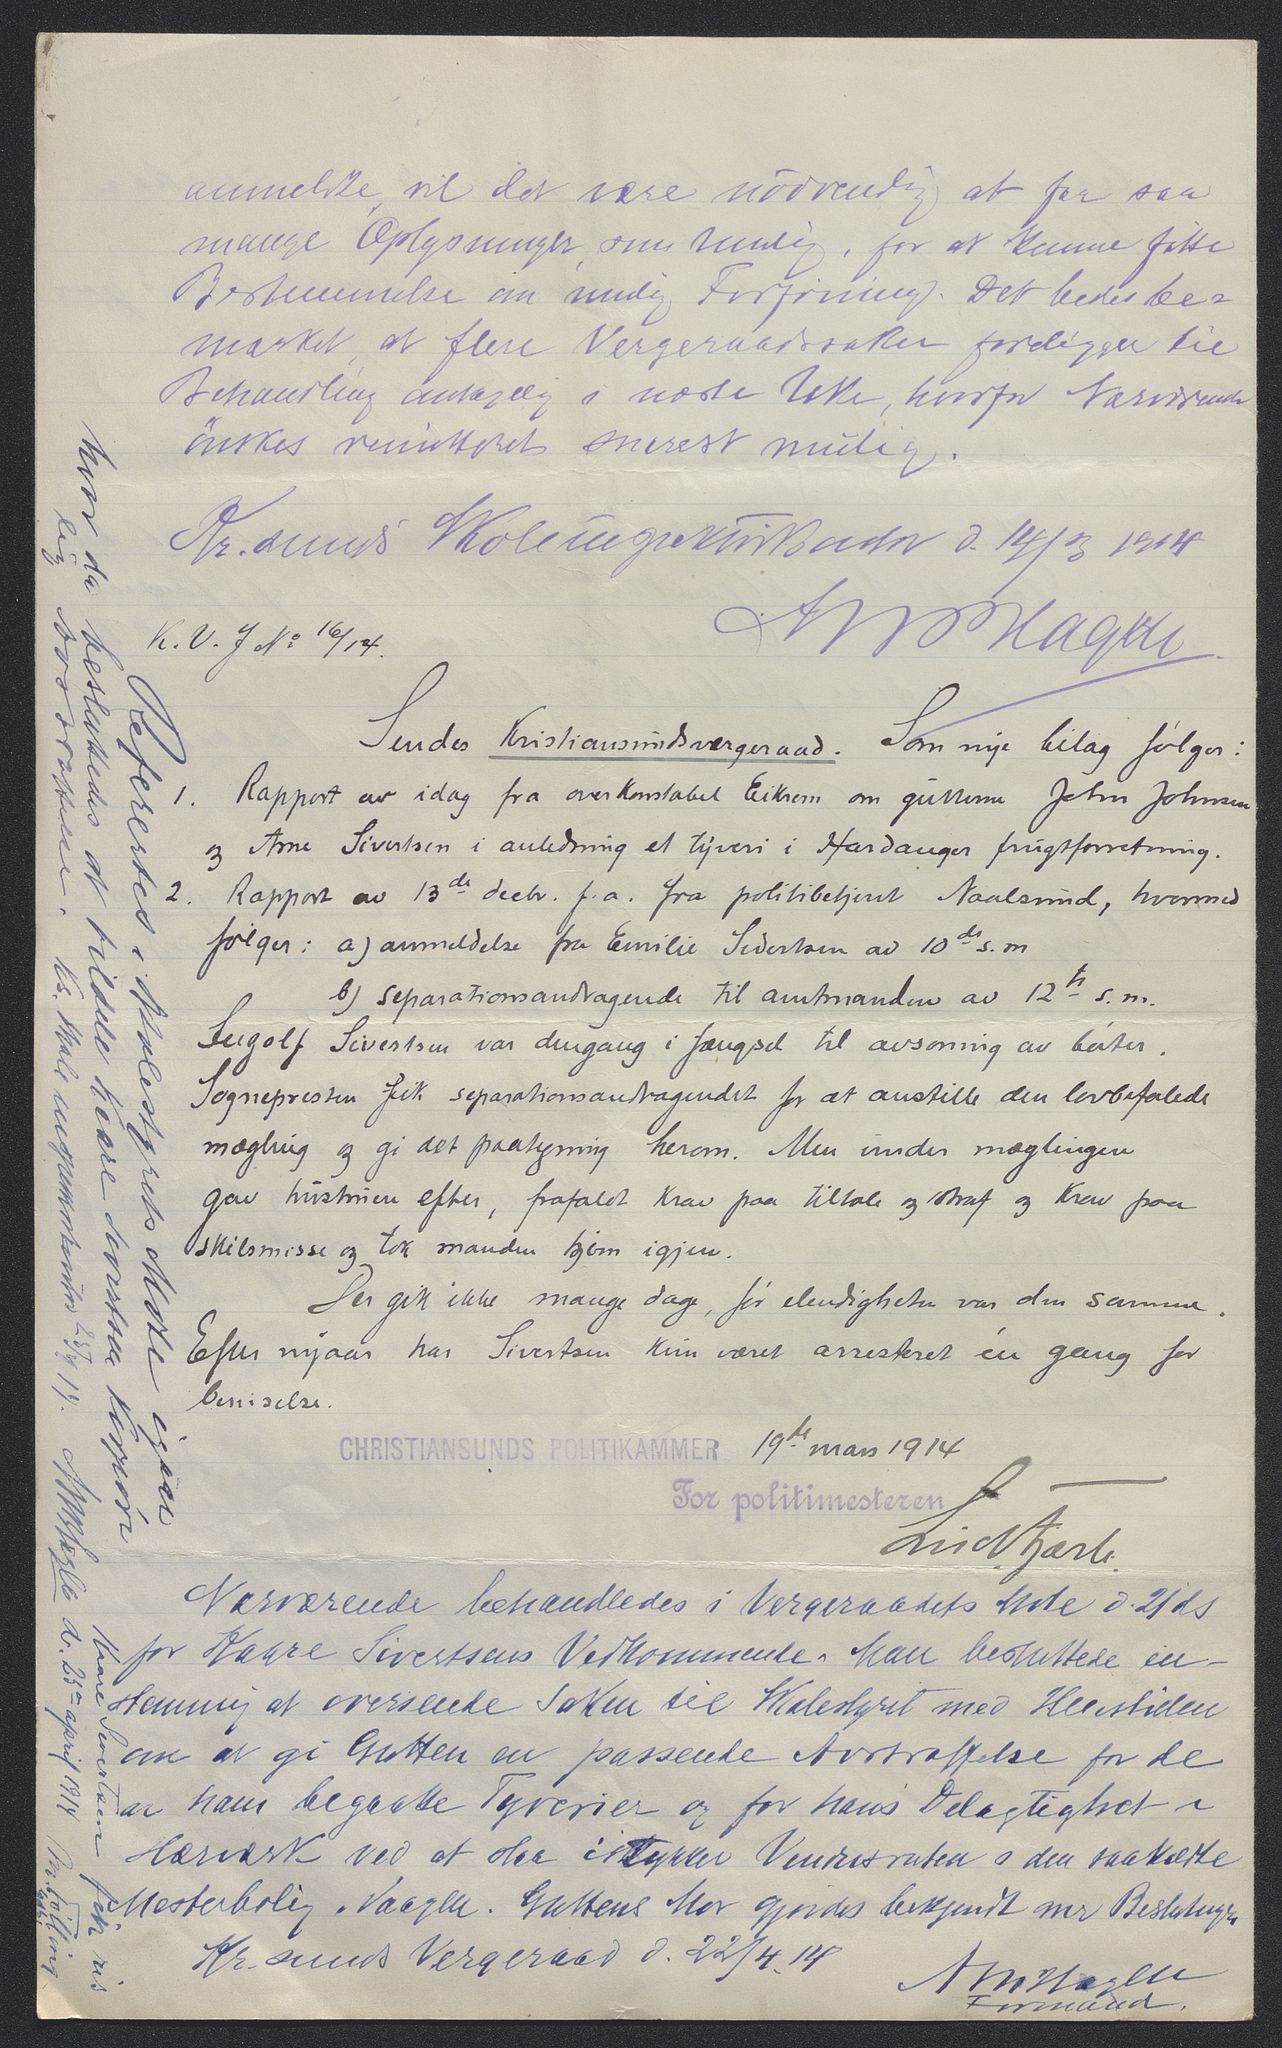 anmeldte, vil det være nödvendig at faa saa
mange Oplysninger, som mulig, for at kunne fatte
Bestemmelse om mulig Forföining. Det bedes be-
mærket, at flere Vergeraadssaker foreligger til
Behandling antagelig i næste Uke, hvorfor Nærværende
önskes remitteret snarest mulig.
Kr.sunds Skoleinspektörkontor d. 14/3 1914
K. V. J No 16/14.
Sendes Kristiansundsvergeraad. Som nye bilag følger:
1. Rapport av idag fra overkonstabel Eikrem om gutterne John Johnsen
og Arne Sivertsen i anledning et tyveri i Hardanger frugtforretning.
2. Rapport av 13de decbr. f.a. fra politibetjent Naalsund, hvormed
følger: a) anmeldelse fra Emilie Sivertsen av 10de s.m
b) separationsandragende til amtmanden av 12te s.m.
Ingolf Sivertsen var dengang i fængsel til avsoning av bøter.
Sognepresten fik separationsandragendet for at anstille den lovbefalede
mægling og gi det paategning herom. Men under mæglingen
gav hustruen efter, frafaldt krav paa tiltale og straf og krav paa
skilsmisse og tok manden hjem igjen.
Der gik ikke mange dage, før elendigheten var den samme.
Efter nyaar har Sivertsen kun været arresteret én gang for
beruselse.
CHRISTIANSUNDS POLITIKAMMER 19de mars 1914
For politimesteren
Nærværende behandledes i Vergeraadets Møte d. 21ds
for Kaare Sivertsens Vedkommende. Man besluttede en-
stemmig at oversende Saken til Skolestyret med Henstilen
om at gi Gutten en passende Avstraffelse for de
av ham begaatte Tyverier og for hans Delagtighet i
Hærverk ved at slaa istykker Vinduesruten i den saakaldte
Mesterbolig, Vaagen. Guttens Mor gjordes bekjendt med Beslutningen
Kr.sunds Vergeraad d. 22/4.14
A M Hagen
Formand.
Refereredes i Skolestyrets Møte igaar
hvor da besluttedes at tildele Kaare Sivertsen
lig avstraffelse. Kr. Skoleinspektörkontor 25/4 14.
Kaare Sivertsen fik ris
d. 25de april 1914